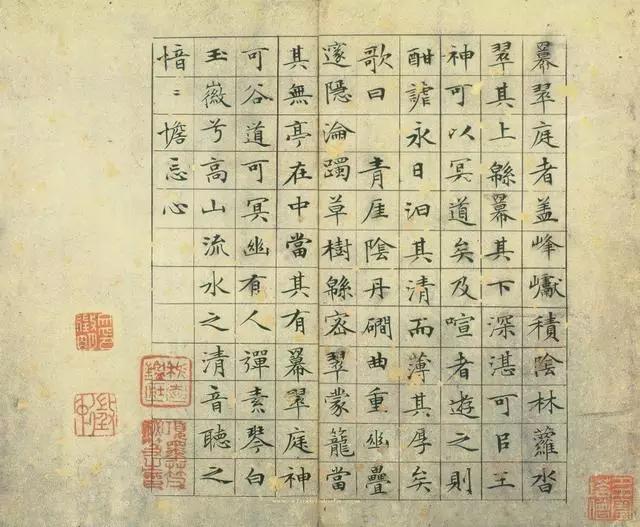 冪翠庭者盖峰巘積陰林蘿沓
翠其上緜冪其下深湛可㠯王
神可以冥道矣及喧者遊之則
酣謔永日汩其清而薄其厚矣
歌曰 青厓陰丹磵曲重幽疊
邃隱淪躅草樹緜宻翠蒙籠當
其無亭在中當其有冪翠庭神
可谷道可冥幽有人彈素琴白
玉徽兮高山流水之清音聽之
愔〻憺忘心